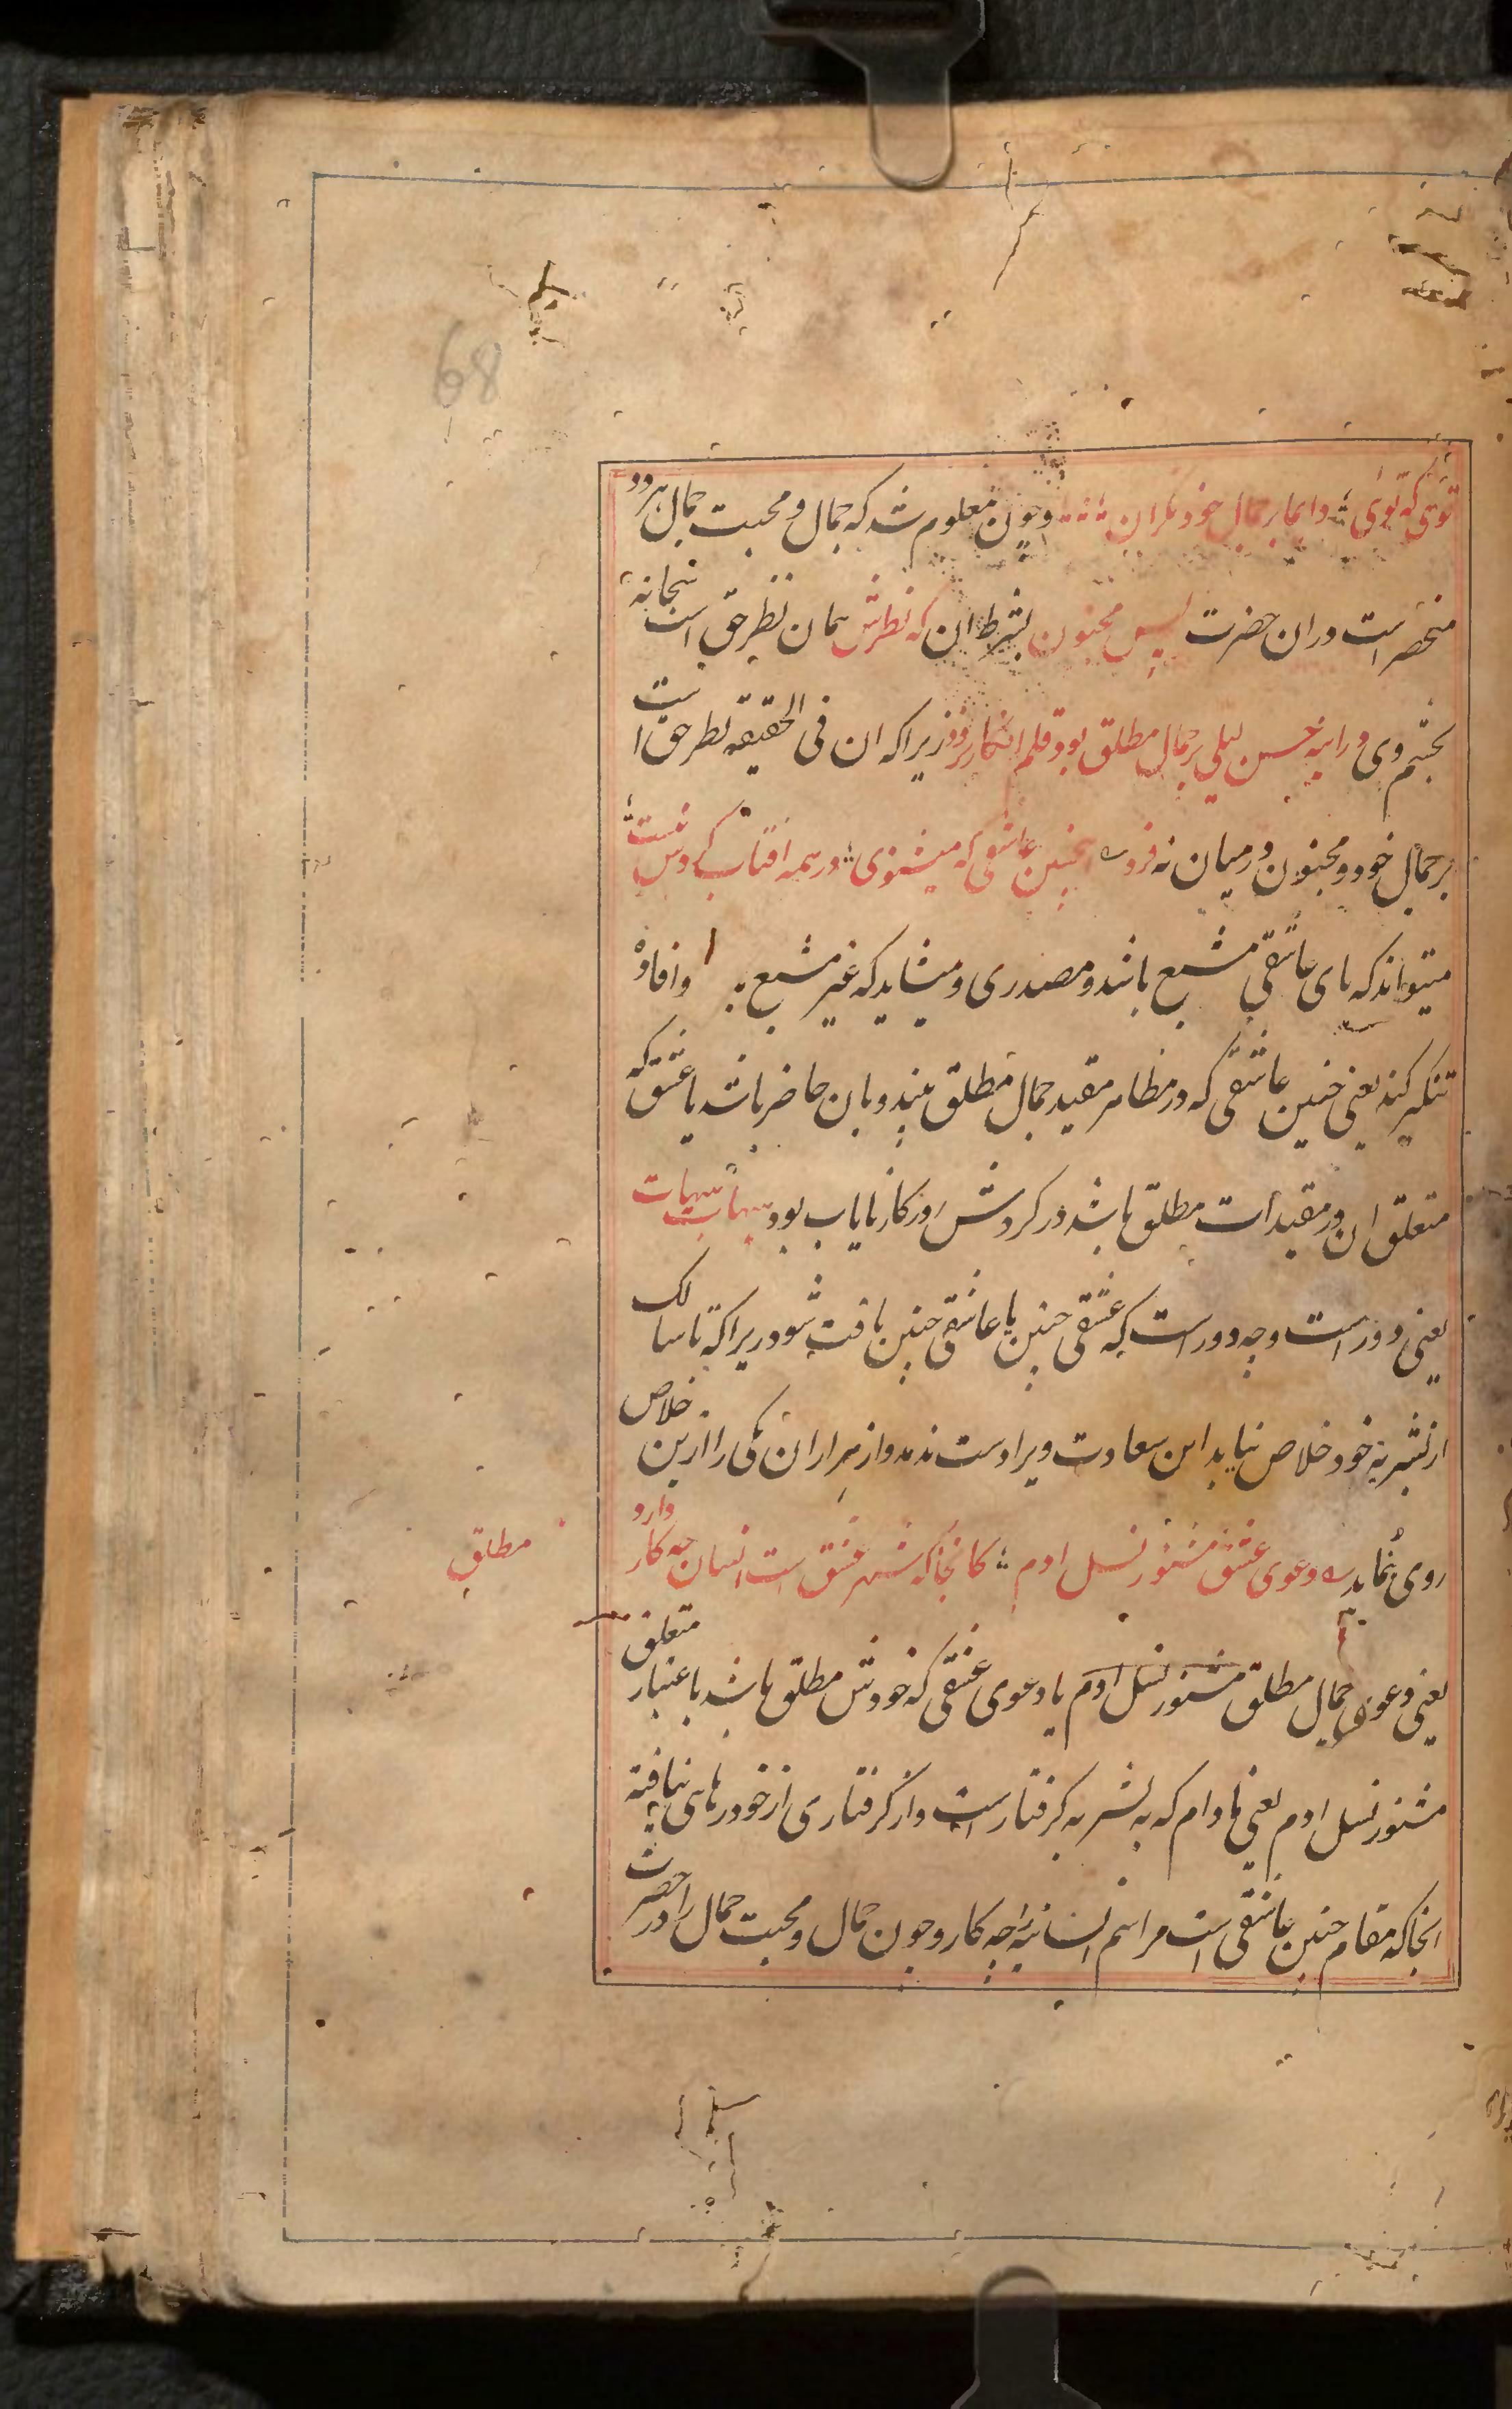 68
توئی که توئی دایما بر جمال خود نگران وچون معلوم شد که جمال و محبت جمال هر دو
منحصر است دران حضرت پس مجنون بشرط ان که نظرش همان نظر حق است
بچشم وی ورا به حسن لیلی بر جمال مطلق بود قلم انکار برو زیرا که ان فی الحقیقه نظر حق است
بر جمال خود و مجنون در میان نه فرد چنین عاشقی که میشنوی در همه افتاب کردش نیست
میتواند که یای عاشقی مشبع باشد و مصدری و میشاید که غیر مشبع وافاده
تنکیر کند یعنی چنین عاشقی که در مظاهر مقید جمال مطلق بیند وبان حاضر باشد یا عشقی که
متعلق ان در مقیدات مطلق باشد در کردش روزکار نایاب بود هیهات هیهات
یعنی دور است وچه دور است که عشقی چنین یا عاشقی چنین یافت شود زیرا که تا سالک
از بشریه خود خلاص نیابد این سعادت ویرا دست ندهد واز هزاران یکی را ازین خلاص
روی ننماید دعوی عشق مشنو ز نسل ادم کانجا که شهر عشق است انسان چه کار دارد
مطلق
یعنی دعوی جمال مطلق مشنو ز نسل ادم یا دعوی عشقی که خودش مطلق باشد باعتبار متعلق
مشنو ز نسل ادم یعنی مادام که به بشریه کرفتار است واز کرفتاری از خود رهایی نیافته
انجا که مقام چنین عاشقی است مراسم انسانیه را چه کار وچون جمال و محبت جمال را در حضرت